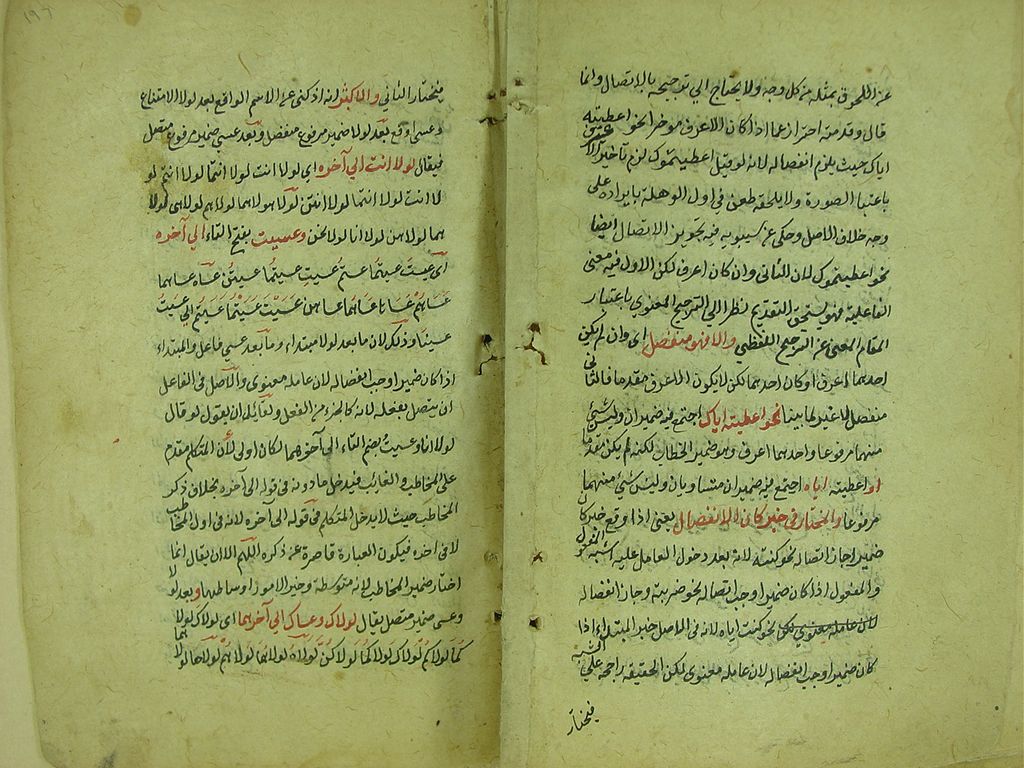 عن اللحوق بمثله من كل وجه ولا يحتاج الي توجيهه بالاتصال وانما
قال وقدمته احترازعما اذا كان الاعرف موخرا نحو اعطيته
اياك حيث يلزم انفصاله لانه لو قيل اعطيتهوك لزم تاخير الاعرف
باعتبار الصورة ولا يلحقه طعن في اول الوهلة بايراده على
وجه خلاف الاصل وحكى عن سيبويه فيه تجويز الاتصال ايضا
نحو اعطيتهوك لان الثاني وان كان اعرف لكن الاول فيه معنى
الفاعلية فهو يستحق التقديم نظرا الى الترجيح المعنوي باعتبار
المقام المغني عن الترجيح اللفظي والا فهو منفصل اى وان لم يكن
احدهما اعرف او كان احدهما لكن لا يكون الاعرف مقدما فالثاني
منفصل لا غير لما بينا نحو اعطيته اياك اجتمع فيه ضميران وليس شئ
منهما مرفوعا واحدهما اعرف وهو ضمير الخطاب لكنه لم يكن مقدما
او اعطيته اياه اجتمع فيه ضميران متساويان وليس شئ منهما
مرفوعا والمختار في خبر كان الانفصال يعنى اذا وقع خبر كان
ضمير اجاز اتصاله نحو كنته لانه بعد دخول العامل عليه اشبه المفعول
والمفعول اذا كان ضميرا وجب اتصاله نحو ضربته وجاز انفصاله
لان عامله معنوي نحو كنت اياه لانه في الاصل خبر المبتداء اذا
كان ضميرا وجب انفصاله لان عامله معنوى لكن الحقيقة راجحة على الشبه
فيختار
١٩٦
فيختار الثاني والاكثر انه اذ كنى عن الاسم الواقع بعد لولا الامتناع
وعسى اوقع بعد لولا ضمير مرفوع منفصل وبعد عسى ضمير مرفوع متصل
فيقال لولا انت الي آخره اى لولا انت لولا انتما لولا انتم لو
لا انت لولا انتما لولا انتن لولا هو لولا هما لولا هم لولا هى لولا
هما لولا هن لولا انا لولا نحن وعسيت بفتح التاء الي آخره
اى عسيت عسيتما عسيتم عسيت عسيتما عسيتن عساه عساهما
عساهم عساها عساهما عساهن عسيت عسيتما عسيتم الي عسيت
عسينا وذلك لان ما بعد لولا مبتداء وما بعد عسى فاعل والمبتداء
اذا كان ضميرا وجب انفصاله لان عامله معنوى والاصل في الفاعل
ان يتصل بفعله لانه كالجزء من الفعل ولقائل ان يقول لو قال
لولا انا وعسيت بضم التاء الى آخرهما لكان اولى لأن المتكلم مقدم
على المخاطب والغايب فيدخل ما دونه في قوله الى آخره بخلاف ذكر
المخاطب حيث لا يدخل المتكلم في قوله الى آخره لانه في اول المخاطب
لا في اخره فيكون العبارة قاصرة عن ذكره اللهم الا ان يقال انما
اختار ضمير المخاطب لانه متوسطة وخير الامور اوساطها وبعد لولا
وعسى ضمير متصل يقال لولاك وعساك الي آخرهما اى لولاك لولا
كما لولاكم لولاك لولاكما لولاكن لولاه لولاهما لولاهم لولاها لولاهما